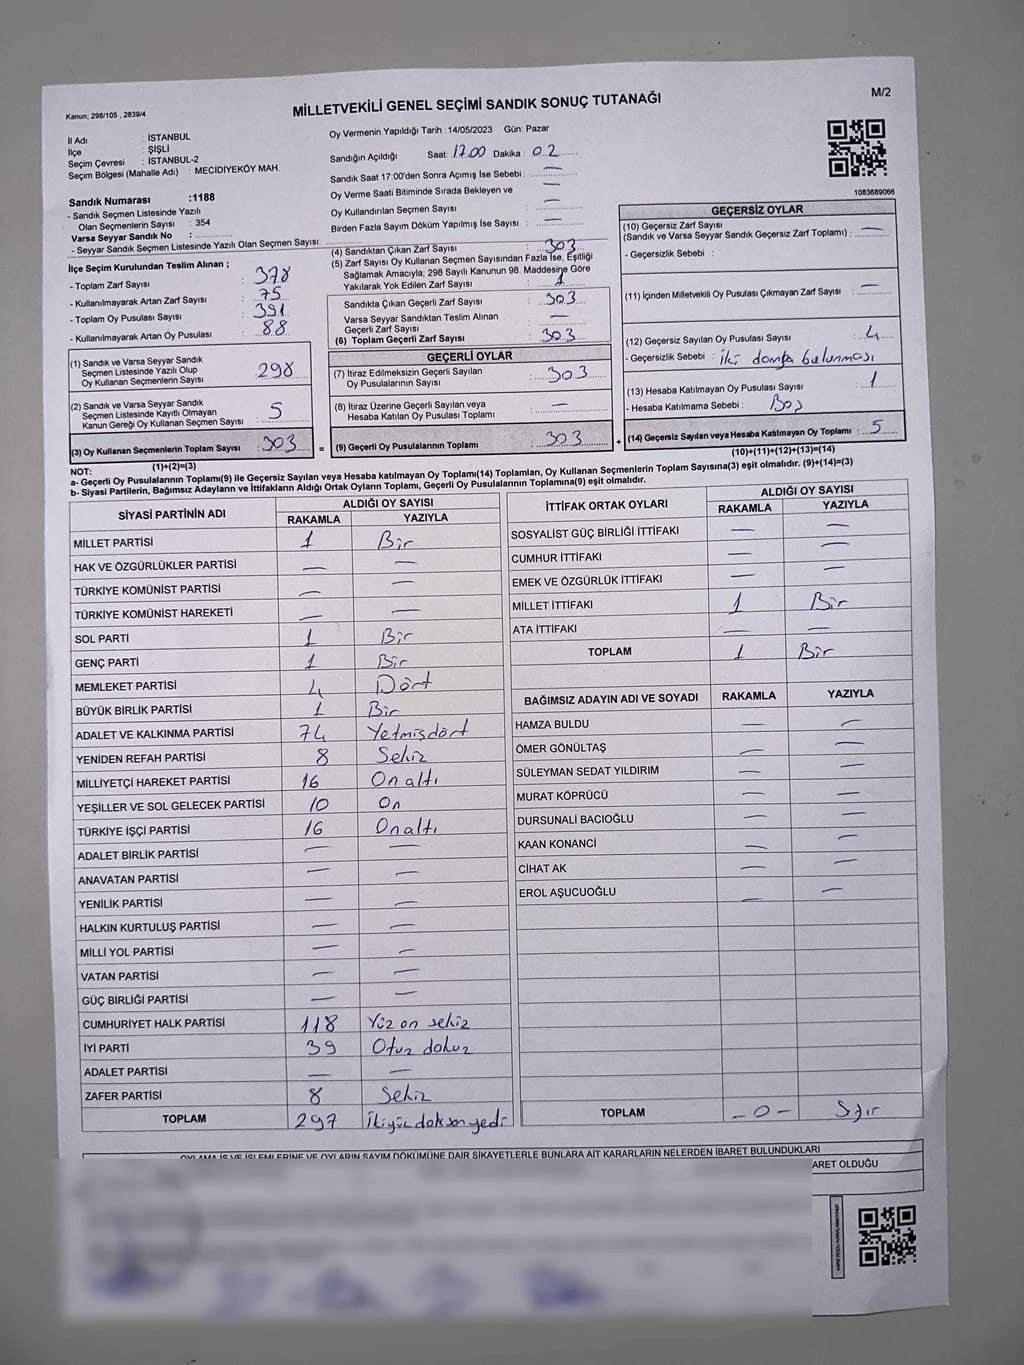 Kanun; 298/105 , 2839/4
MİLLETVEKİLİ GENEL SEÇİMİ SANDIK SONUÇ TUTANAĞI
M/2
İl Adı : İSTANBUL
İlçe : ŞİŞLİ
Seçim Çevresi : İSTANBUL-2
Seçim Bölgesi (Mahalle Adı) : MECİDİYEKÖY MAH.
Oy Vermenin Yapıldığı Tarih : 14/05/2023 Gün: Pazar
Sandığın Açıldığı Saat: 17.00 Dakika : 02
Sandık Saat 17:00'den Sonra Açımış İse Sebebi : —
Oy Verme Saati Bitiminde Sırada Bekleyen ve —
Oy Kullandırılan Seçmen Sayısı
Birden Fazla Sayım Döküm Yapılmış İse Sayısı : —
1083689066
Sandık Numarası :1188
- Sandık Seçmen Listesinde Yazılı
Olan Seçmenlerin Sayısı : 354
Varsa Seyyar Sandık No :
- Seyyar Sandık Seçmen Listesinde Yazılı Olan Seçmen Sayısı:
İlçe Seçim Kurulundan Teslim Alınan ;
- Toplam Zarf Sayısı : 378
- Kullanılmayarak Artan Zarf Sayısı : 75
- Toplam Oy Pusulası Sayısı : 391
- Kullanılmayarak Artan Oy Pusulası : 88
(1) Sandık ve Varsa Seyyar Sandık
Seçmen Listesinde Yazılı Olup
Oy Kullanan Seçmenlerin Sayısı : 298
(2) Sandık ve Varsa Seyyar Sandık
Seçmen Listesinde Kayıtlı Olmayan
Kanun Gereği Oy Kullanan Seçmen Sayısı : 5
(3) Oy Kullanan Seçmenlerin Toplam Sayısı : 303 =
(1)+(2)=(3)
(4) Sandıktan Çıkan Zarf Sayısı : 303
(5) Zarf Sayısı Oy Kullanan Seçmen Sayısından Fazla İse, Eşitliği
Sağlamak Amacıyla; 298 Sayılı Kanunun 98. Maddesine Göre
Yakılarak Yok Edilen Zarf Sayısı : 1
Sandıkta Çıkan Geçerli Zarf Sayısı : 303
Varsa Seyyar Sandıktan Teslim Alınan
Geçerli Zarf Sayısı : —
(6) Toplam Geçerli Zarf Sayısı : 303
GEÇERLİ OYLAR
(7) İtiraz Edilmeksizin Geçerli Sayılan
Oy Pusulalarının Sayısı : 303
(8) İtiraz Üzerine Geçerli Sayılan veya
Hesaba Katılan Oy Pusulası Toplamı : —
(9) Geçerli Oy Pusulalarının Toplamı : 303 +
GEÇERSİZ OYLAR
(10) Geçersiz Zarf Sayısı
(Sandık ve Varsa Seyyar Sandık Geçersiz Zarf Toplamı) : —
- Geçersizlik Sebebi :
(11) İçinden Milletvekili Oy Pusulası Çıkmayan Zarf Sayısı : —
(12) Geçersiz Sayılan Oy Pusulası Sayısı : 4
- Geçersizlik Sebebi : İki damga bulunması
(13) Hesaba Katılmayan Oy Pusulası Sayısı : 1
- Hesaba Katılmama Sebebi : Boş
(14) Geçersiz Sayılan veya Hesaba Katılmayan Oy Toplamı : 5
(10)+(11)+(12)+(13)=(14)
NOT:
a- Geçerli Oy Pusulalarının Toplamı(9) ile Geçersiz Sayılan veya Hesaba katılmayan Oy Toplamı(14) Toplamları, Oy Kullanan Seçmenlerin Toplam Sayısına(3) eşit olmalıdır. (9)+(14)=(3)
b- Siyasi Partilerin, Bağımsız Adayların ve İttifakların Aldığı Ortak Oyların Toplamı, Geçerli Oy Pusulalarının Toplamına(9) eşit olmalıdır.
SİYASİ PARTİNİN ADI ALDIĞI OY SAYISI
RAKAMLA YAZIYLA
MİLLET PARTİSİ 1 Bir
HAK VE ÖZGÜRLÜKLER PARTİSİ — —
TÜRKİYE KOMÜNİST PARTİSİ — —
TÜRKİYE KOMÜNİST HAREKETİ — —
SOL PARTİ 1 Bir
GENÇ PARTİ 1 Bir
MEMLEKET PARTİSİ 4 Dört
BÜYÜK BİRLİK PARTİSİ 1 Bir
ADALET VE KALKINMA PARTİSİ 74 Yetmişdört
YENİDEN REFAH PARTİSİ 8 Sekiz
MİLLİYETÇİ HAREKET PARTİSİ 16 Onaltı
YEŞİLLER VE SOL GELECEK PARTİSİ 10 On
TÜRKİYE İŞÇİ PARTİSİ 16 Onaltı
ADALET BİRLİK PARTİSİ — —
ANAVATAN PARTİSİ — —
YENİLİK PARTİSİ — —
HALKIN KURTULUŞ PARTİSİ — —
MİLLİ YOL PARTİSİ — —
VATAN PARTİSİ — —
GÜÇ BİRLİĞİ PARTİSİ — —
CUMHURİYET HALK PARTİSİ 118 Yüz on sekiz
İYİ PARTİ 39 Otuz dokuz
ADALET PARTİSİ — —
ZAFER PARTİSİ 8 Sekiz
TOPLAM 297 İkiyüz doksan yedi
İTTİFAK ORTAK OYLARI ALDIĞI OY SAYISI
RAKAMLA YAZIYLA
SOSYALİST GÜÇ BİRLİĞİ İTTİFAKI — —
CUMHUR İTTİFAKI — —
EMEK VE ÖZGÜRLÜK İTTİFAKI — —
MİLLET İTTİFAKI 1 Bir
ATA İTTİFAKI — —
TOPLAM 1 Bir
BAĞIMSIZ ADAYIN ADI VE SOYADI RAKAMLA YAZIYLA
HAMZA BULDU — —
ÖMER GÖNÜLTAŞ — —
SÜLEYMAN SEDAT YILDIRIM — —
MURAT KÖPRÜCÜ — —
DURSUNALİ BACIOĞLU — —
KAAN KONANCİ — —
CİHAT AK — —
EROL AŞUCUOĞLU — —
TOPLAM -0- Sıfır
OYLAMA İŞ VE İŞLEMLERİNE VE OYLARIN SAYIM DÖKÜMÜNE DAİR ŞİKAYETLERLE BUNLARA AİT KARARLARIN NELERDEN İBARET BULUNDUKLARI
ARET OLDUĞU